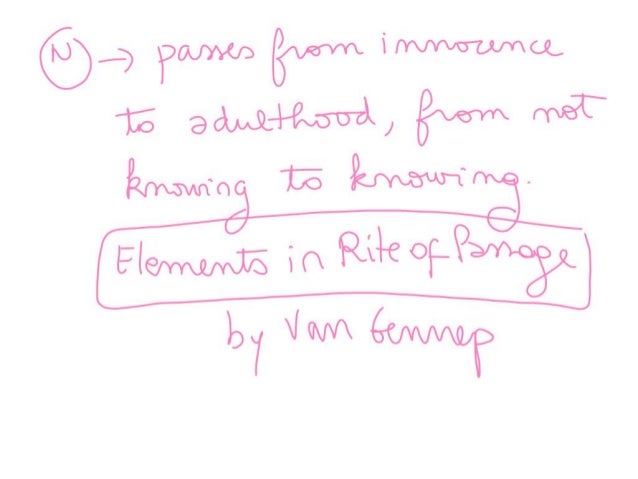 N → passes from innocence
to adulthood, from not
knowing to knowing.
Elements in Rite of Passage
by Van Gennep